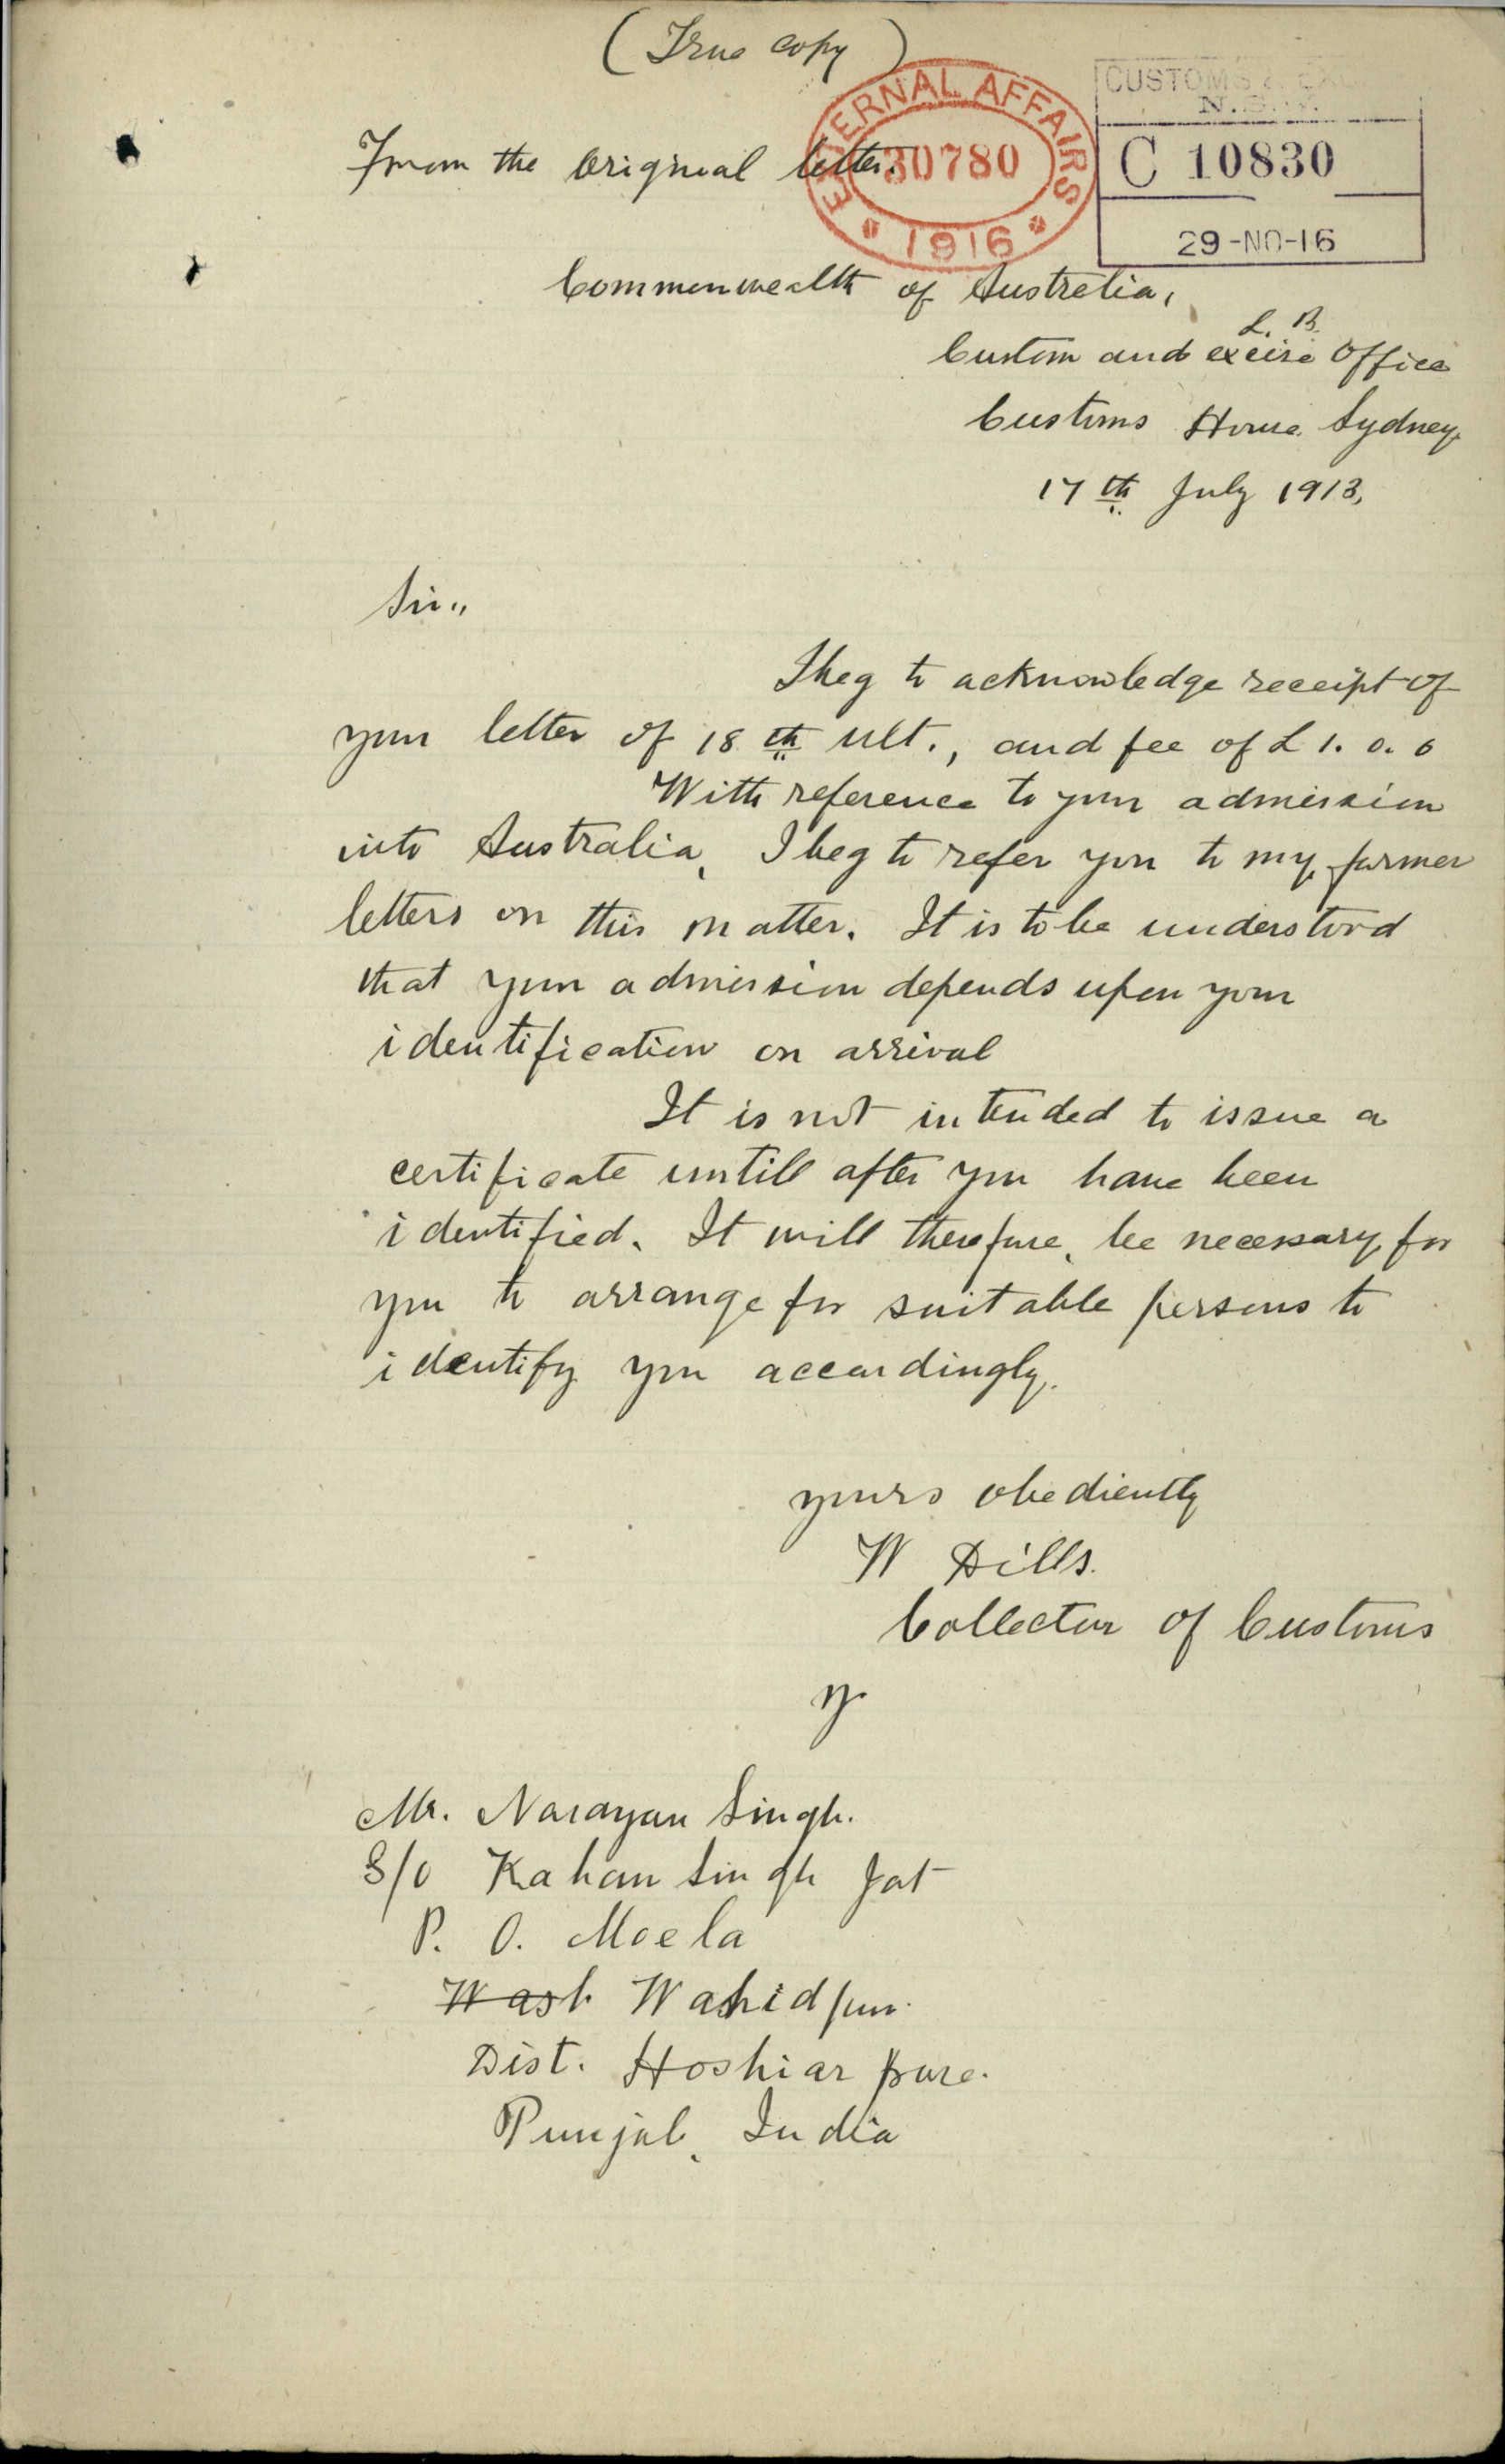 (True copy)
EXTERNAL AFFAIRS
30780
1916
CUSTOMS & EXC
N.S.W.
C 10830
29-NO-16
From the Original letter.
Commonwealth of Australia,
L. B.
Custom and excise Office
Customs House Sydney.
17th July 1913,
Sir,,
I beg to acknowledge receipt of
your letter of 18th ult., and fee of £ 1. 0. 0
With reference to your admission
into Australia, I beg to refer you to my former
letters on this matter. It is to be understood
that your admission depends upon your
identification on arrival
It is not intended to issue a
certificate untill after you have been
identified. It will therefore, be necessary for
you to arrange for suitable persons to
identify you accordingly.
yours obediently
W Hills.
Collector of Customs
Mr. Narayan Singh.
S/o Kahan Singh Jat
P. O. Moela
Wahidpur.
Dist. Hoshiar pure.
Punjab, India